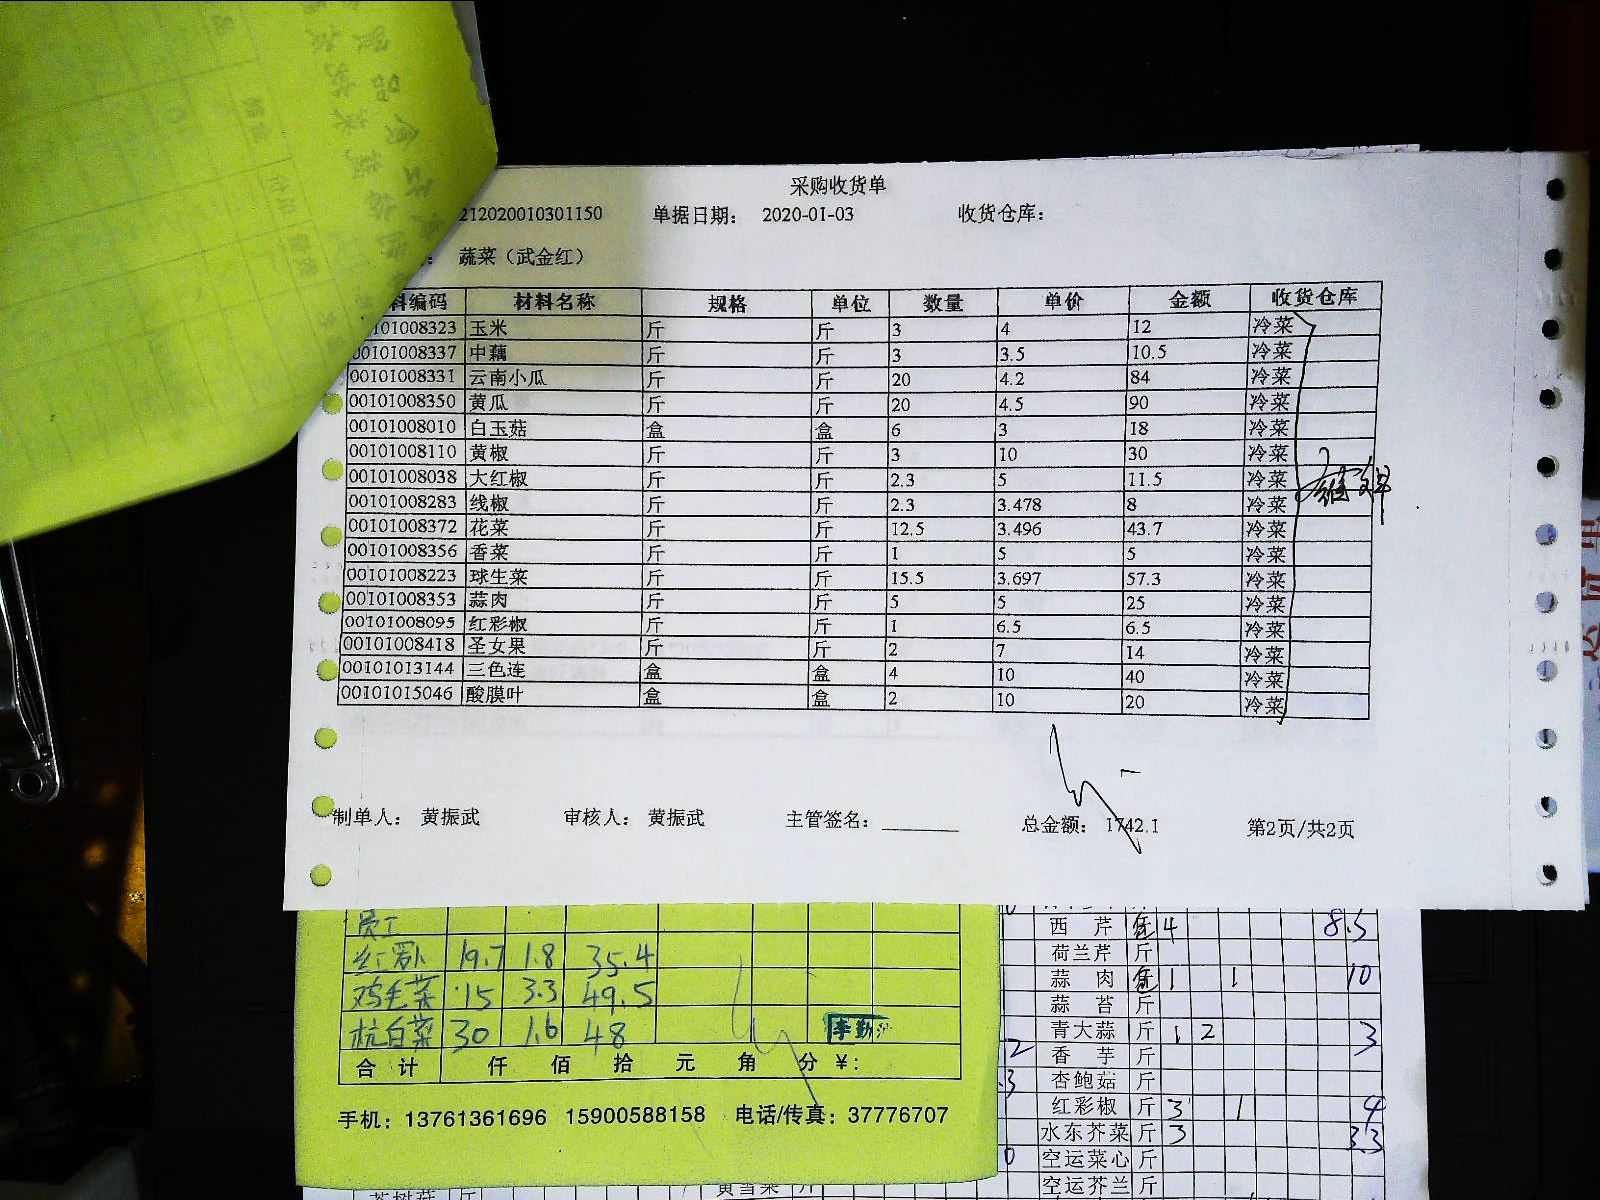 采购收货单
212020010301150 单据日期： 2020-01-03 收货仓库：
： 蔬菜（武金红）
料编码 材料名称 规格 单位 数量 单价 金额 收货仓库
101008323 玉米 斤 斤 3 4 12 冷菜
00101008337 中藕 斤 斤 3 3.5 10.5 冷菜
00101008331 云南小瓜 斤 斤 20 4.2 84 冷菜
00101008350 黄瓜 斤 斤 20 4.5 90 冷菜
00101008010 白玉菇 盒 盒 6 3 18 冷菜
00101008110 黄椒 斤 斤 3 10 30 冷菜
00101008038 大红椒 斤 斤 2.3 5 11.5 冷菜
00101008283 线椒 斤 斤 2.3 3.478 8 冷菜
00101008372 花菜 斤 斤 12.5 3.496 43.7 冷菜
00101008356 香菜 斤 斤 1 5 5 冷菜
00101008223 球生菜 斤 斤 15.5 3.697 57.3 冷菜
00101008353 蒜肉 斤 斤 5 5 25 冷菜
00101008095 红彩椒 斤 斤 1 6.5 6.5 冷菜
00101008418 圣女果 斤 斤 2 7 14 冷菜
00101013144 三色连 盒 盒 4 10 40 冷菜
00101015046 酸膜叶 盒 盒 2 10 20 冷菜
制单人： 黄振武 审核人： 黄振武 主管签名： 总金额： 1742.1 第2页/共2页
员工
红萝卜 19.7 1.8 35.4
鸡毛菜 15 3.3 49.5
杭白菜 30 1.6 48
合 计 仟 佰 拾 元 角 分 ¥:
手机：13761361696 15900588158 电话/传真：37776707
西 芹 4 8.5
荷兰芹 斤
蒜 肉 1 1 10
蒜 苔 斤
青大蒜 斤 1 2 3
香 芋 斤
杏鲍菇 斤
红彩椒 斤 3 1 4
水东芥菜 斤 3 3.3
空运菜心 斤
空运芥兰 斤